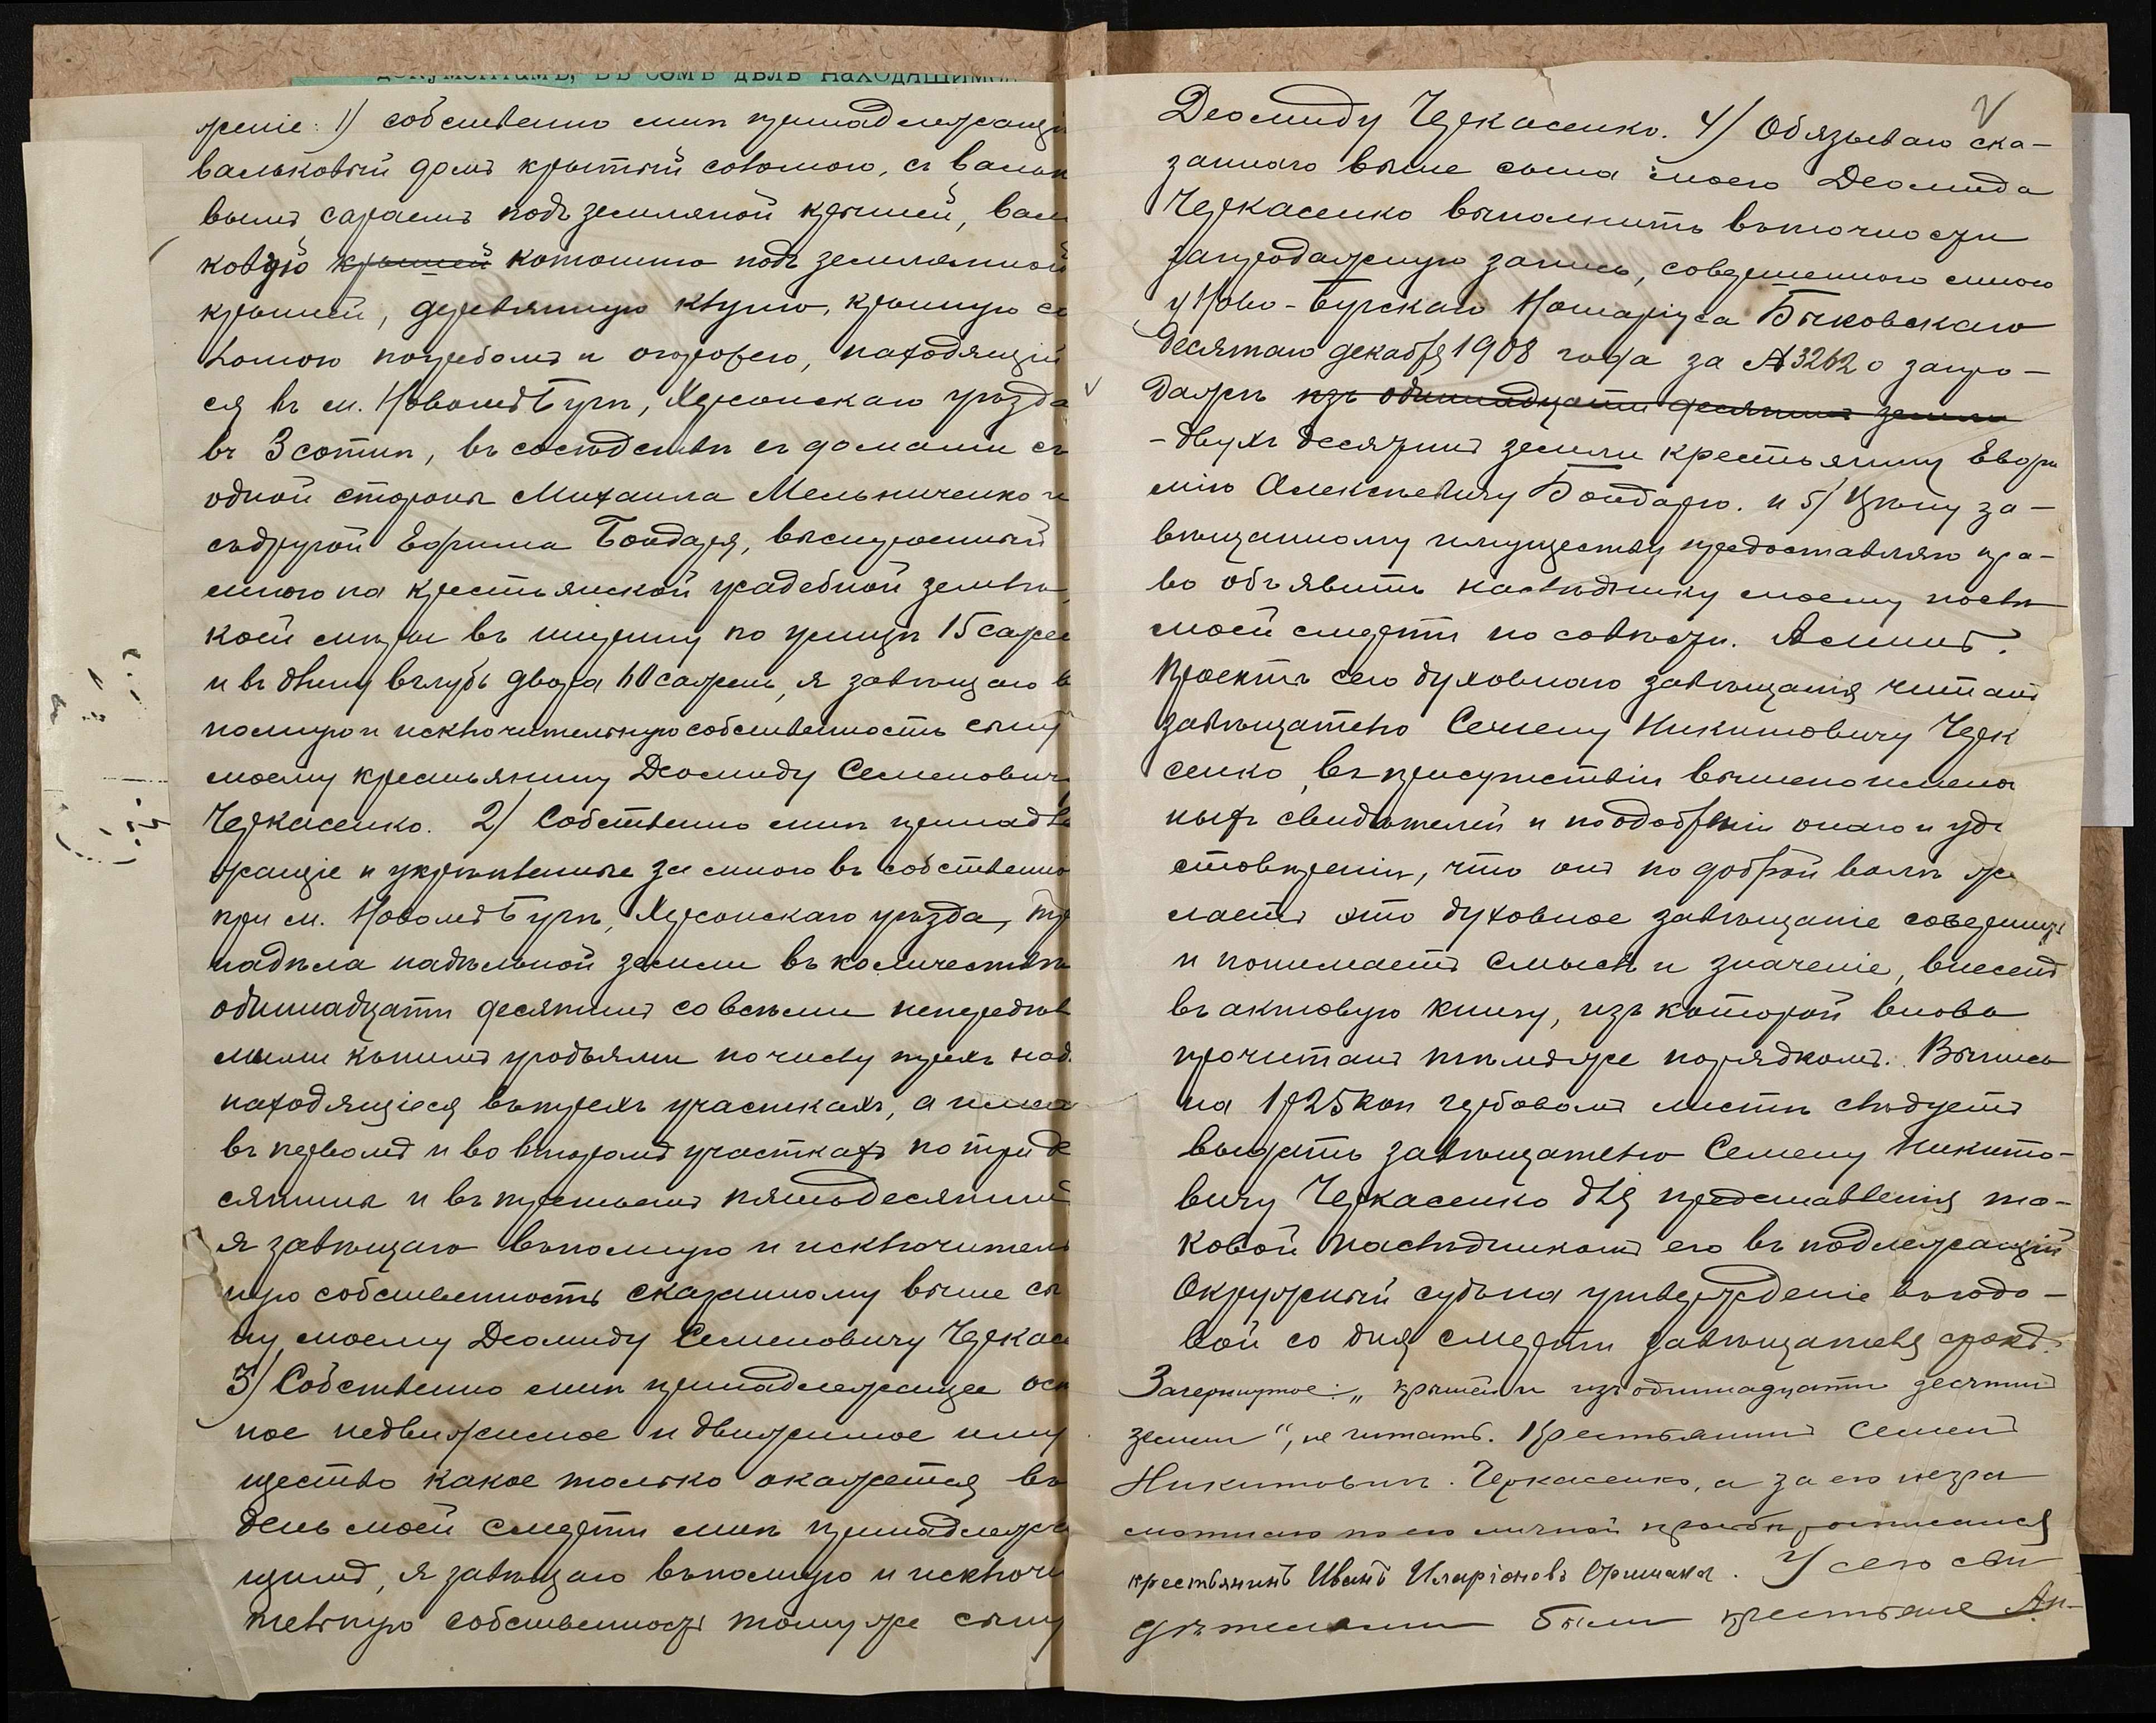 документамъ, въ семъ дѣлѣ находящимся
женіе: 1) собственно мнѣ принадлежащі
вальковый домъ крытый соломою, съ вальк
вымъ сараемъ подъ земляной крышей, валь
ковую крышей катошню подъ земляной
крышей, деревянную клуню, крытую со
ломою погребомъ и огорожею, находящій
ся въ м. Новомъ Бугѣ, Херсонскаго уѣзда
въ 3 сотни, въ сосѣдствѣ съ домами съ
одной стороны Михаила Мельниченко и
съ другой Ефрима Бондаря, выстроенный
мною на крестьянской усадебной землѣ,
коей мѣры въ ширину по улицѣ 15 сажен
и въ длину вглубь двора 60 сажень, я завѣщаю въ
полную и исключительную собственность сыну
моему крестьянину Деомиду Семеновичу
Черкасенко. 2) Собственно мнѣ принадле
жащіе и укрѣпленные за мною въ собственно
при м. Новомъ Бугѣ, Херсонскаго уѣзда, тр
надѣла надѣльной земли въ количествѣ
одиннадцати десятинъ со всѣми непередѣл
мыми къ нимъ угодьями по числу трехъ над.
находящіеся въ трехъ участкахъ, а имен
въ первомъ и во второмъ участкахъ по три де
сятины и въ третьемъ пять десятинъ
я завѣщаю въ полную и исключитель
ную собственность сказанному выше сы
ну моему Деомиду Семеновичу Черкас
3) Собственно мнѣ принадлежащее ост
ное недвижимое и движимое иму
щество какое только окажется въ
день моей смерти мнѣ принадлежа
щимъ, я завѣщаю въ полную и исключи
тельную собственность тому же сыну
Деомиду Черкасенко. 4) Обязываю ска-
заннаго выше сына моего Деомида
Черкасенко выполнить въ точности
запродажную запись, совершенною мною
у Ново-Бугскаго Нотаріуса Быковскаго
десятаго декабря 1908 года за № 3262 о запро-
дажѣ изъ одиннадцати десятинъ земли
- двухъ десятинъ земли крестьянину Евфи
мію Алексѣевичу Бондарю. и 5) Цѣну за-
вѣщанному имуществу предоставляю пра-
во объявить наслѣднику моему послѣ
моей смерти по совѣсти. Аминь.
Проектъ сего духовнаго завѣщанія читанъ
завѣщателю Семену Никитовичу Черк
сенко, въ присутствіи вышепоимено
ныхъ свидѣтелей и по одобреніи онаго и удо
стовѣреніи, что онъ по доброй волѣ же
лаетъ это духовное завѣщаніе совершить
и понимаетъ смыслъ и значеніе, внесенъ
въ актовую книгу, изъ которой вновь
прочитанъ тѣмъ же порядкомъ. Выпись
на 1 р 25 коп гербовомъ листѣ слѣдуетъ
выдать завѣщателю Семену Никито-
вичу Черкасенко для представленія та-
ковой наслѣдникомъ его въ подлежащій
Окружный судъ на утвержденіе въ годо-
вой со дня смерти завѣщателя срокъ.
Зачеркнутое: „крышей и изъ одиннадцати десятинъ
земли“, не читать. Крестьянинъ Семенъ
Никитовичъ Черкасенко, а за его негра
мотнаго по его личной просьбѣ росписался
крестьянинъ Иванъ Иларіоновъ Оришака. У сего сви
дѣтелями были крестьяне Ан-